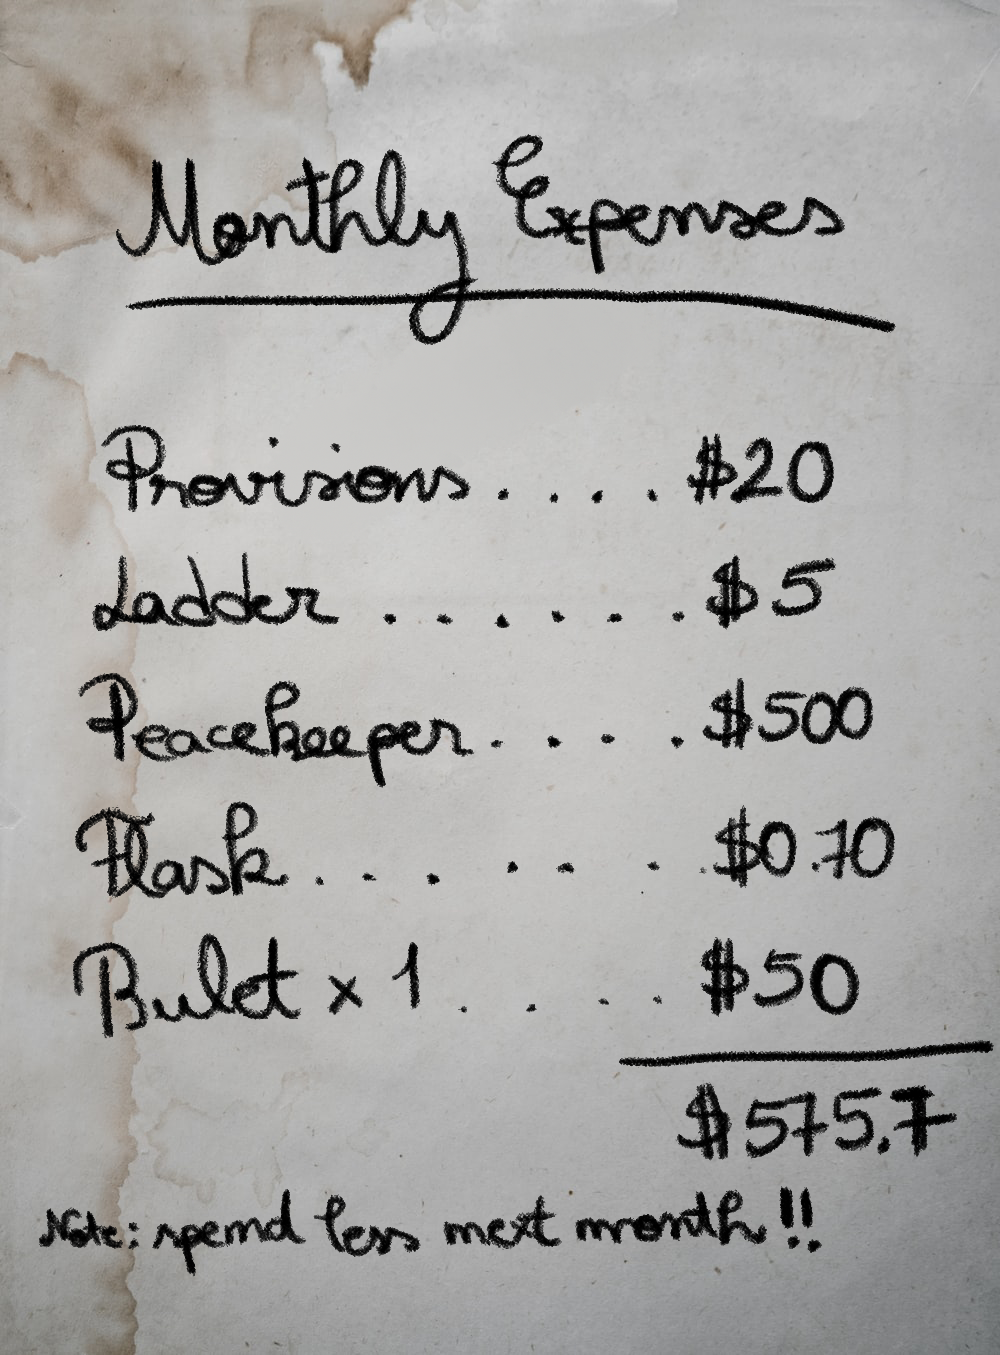 Monthly Expenses
Provisions .... $20
Ladder ...... $5
Peacekeeper .... $500
Flask ....... $0.70
Bulet x 1 .... $50
$575.7
Note: spend less next month!!